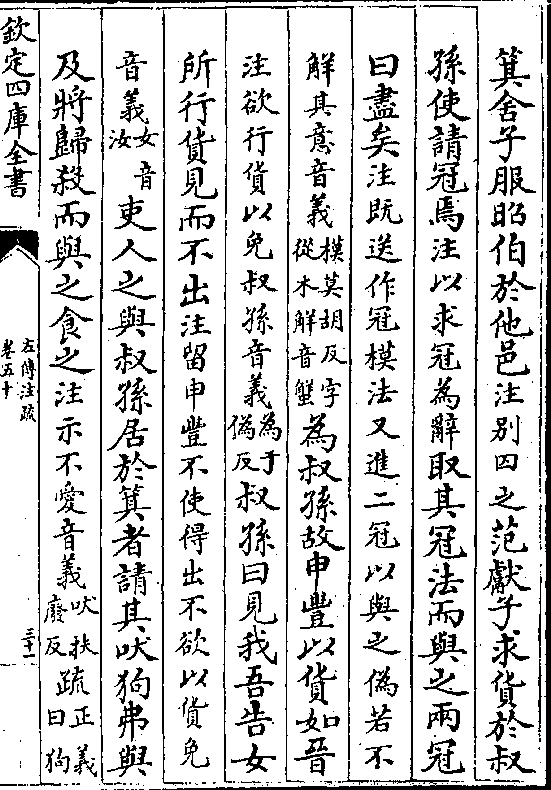 箕舍子服昭伯於他邑注别囚之范獻子求貨於叔
孫使請冠焉注以求冠為辭取其冠法而與之兩冠
曰盡矣注既送作冠模法又進二冠以與之偽若不
解其意音義模莫胡反字從木解音蟹為叔孫故申豐以貨如晉
注欲行貨以免叔孫音義為于偽反叔孫曰見我吾告女
所行貨見而不出注留申豐不使得出不欲以貨免
音義女音汝吏人之與叔孫居於箕者請其吠狗弗與
及將歸殺而與之食之注示不愛音義吠扶廢反疏正義曰狗
欽定四庫全書
左傳注疏
卷五十
三十一